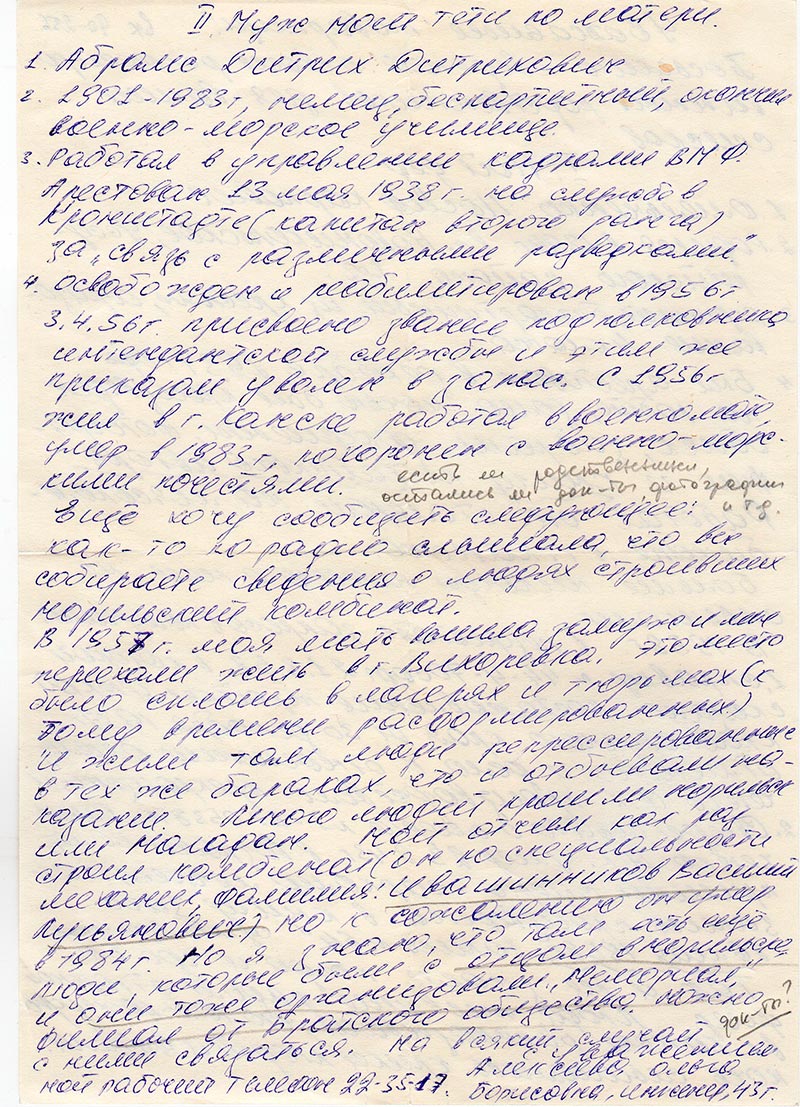 II Муж моей тёти по матери.
1. Абрамс Дитрих Дитрихович
2. 1901-1983г, немец, беспартийный, окончил
военно-морское училище.
3. Работал в управлении кадрами ВМФ.
Арестован 13 мая 1938г. на службе в
Кронштадте (капитан второго ранга)
за „связь с различными разведками".
4. Освобожден и реабилитирован в 1956г
3.4.56г. присвоено звание подполковника
интендантской службы и этим же
приказом уволен в запас. С 1956г.
жил в г. Канске работал в военкомате,
умер в 1983г, похоронен с военно-морс-
кими почестями.
есть ли родственники,
остались ли док-ты, фотографии
и т.д.
Ещё хочу сообщить следующее:
как-то по радио слышала, что вы
собираете сведения о людях строивших
норильский комбинат.
В 1957г. моя мать вышла замуж и мы
переехали жить в г. Вихоревка. Это место
было сплошь в лагерях и тюрьмах (к
тому времени расформированных)
и жили там люди репрессированные
в тех же бараках, что и отбывали на-
казание. Много людей прошли Норильск
или Магадан. Мой отчим как раз
строил комбинат (он по специальности
механик, фамилия: Ивашинников Василий
Лукьянович) но к сожалению он умер
в 1984г. Но я знаю, что там есть ещё
люди, которые были с отцом в Норильске
и они тоже организовали „Мемориал"
филиал от Братского общества. Можно
с ними связаться. На всякий случай
док-ты?
мой рабочий телефон 22-35-17.
С уважением
Алексеева Ольга
Борисовна, инженер, 43г.